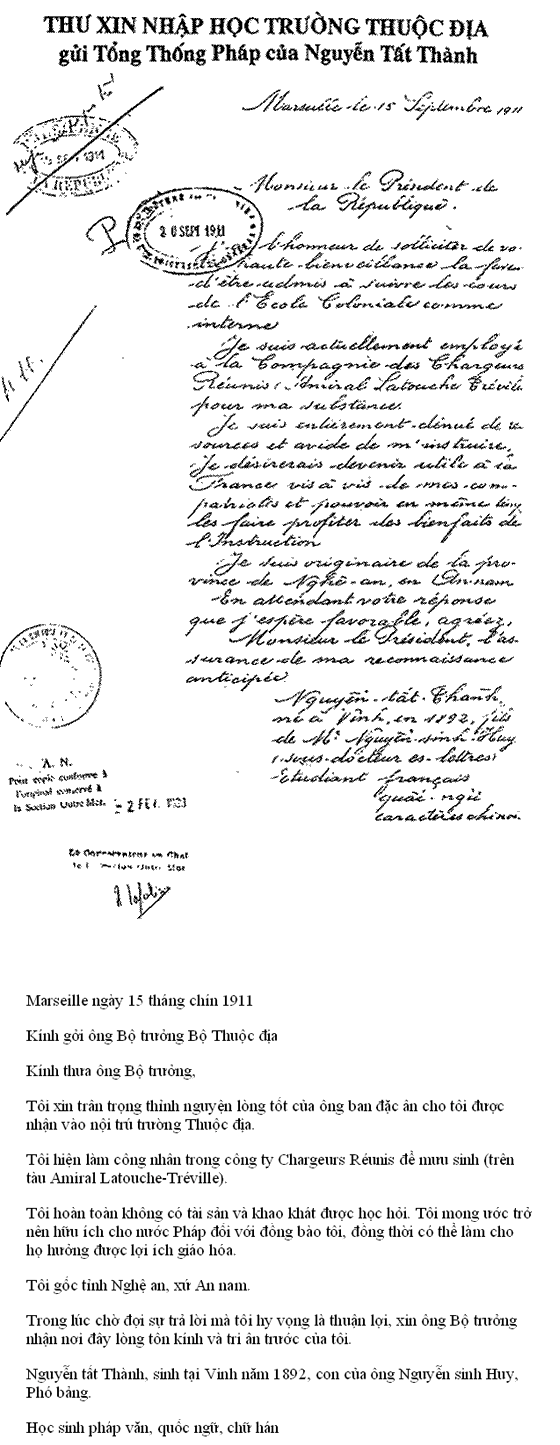 THƯ XIN NHẬP HỌC TRƯỜNG THUỘC ĐỊA
gửi Tổng Thống Pháp của Nguyễn Tất Thành
Marseille le 15 Septembre 1911
Monsieur le Président de
la République.
20 SEPT 1911
l'honneur de solliciter de vo-
haute bienveillance la faveur
d'être admis à suivre les cours
de l'Ecole Coloniale comme
interne
Je suis actuellement employé
à la Compagnie des Chargeurs
Réunis (Amiral Latouche Tréville
pour ma substance.
Je suis entièrement dénué de res
sources et avide de m'instruire.
Je désirerais devenir utile à la
France vis à vis de mes com-
patriotes et pouvoir en même temps
les faire profiter des bienfaits de
l'Instruction
Je suis originaire de la pro-
vince de Nghê-an, en Annam
En attendant votre réponse
que j'espère favorable, agréez,
Monsieur le Président, l'as-
surance de ma reconnaissance
anticipée.
Nguyễn tất Thành,
né à Vinh, en 1892, fils
de Mr. Nguyễn sinh Huy
(sous-docteur ès-lettres)
Etudiant français
quốc-ngữ
caractères chinois
A. N.
Pour copie conforme à
l'original conservé à
la Section Outre Mer.
Le Conservateur en Chef
de la Section Outre Mer
Marseille ngày 15 tháng chín 1911
Kính gởi ông Bộ trưởng Bộ Thuộc địa
Kính thưa ông Bộ trưởng,
Tôi xin trân trọng thỉnh nguyện lòng tốt của ông ban đặc ân cho tôi được
nhận vào nội trú trường Thuộc địa.
Tôi hiện làm công nhân trong công ty Chargeurs Réunis để mưu sinh (trên
tàu Amiral Latouche-Tréville).
Tôi hoàn toàn không có tài sản và khao khát được học hỏi. Tôi mong ước trở
nên hữu ích cho nước Pháp đối với đồng bào tôi, đồng thời có thể làm cho
họ hưởng được lợi ích giáo hóa.
Tôi gốc tỉnh Nghệ an, xứ An nam.
Trong lúc chờ đợi sự trả lời mà tôi hy vọng là thuận lợi, xin ông Bộ trưởng
nhận nơi đây lòng tôn kính và tri ân trước của tôi.
Nguyễn tất Thành, sinh tại Vinh năm 1892, con của ông Nguyễn sinh Huy,
Phó bảng.
Học sinh pháp văn, quốc ngữ, chữ hán